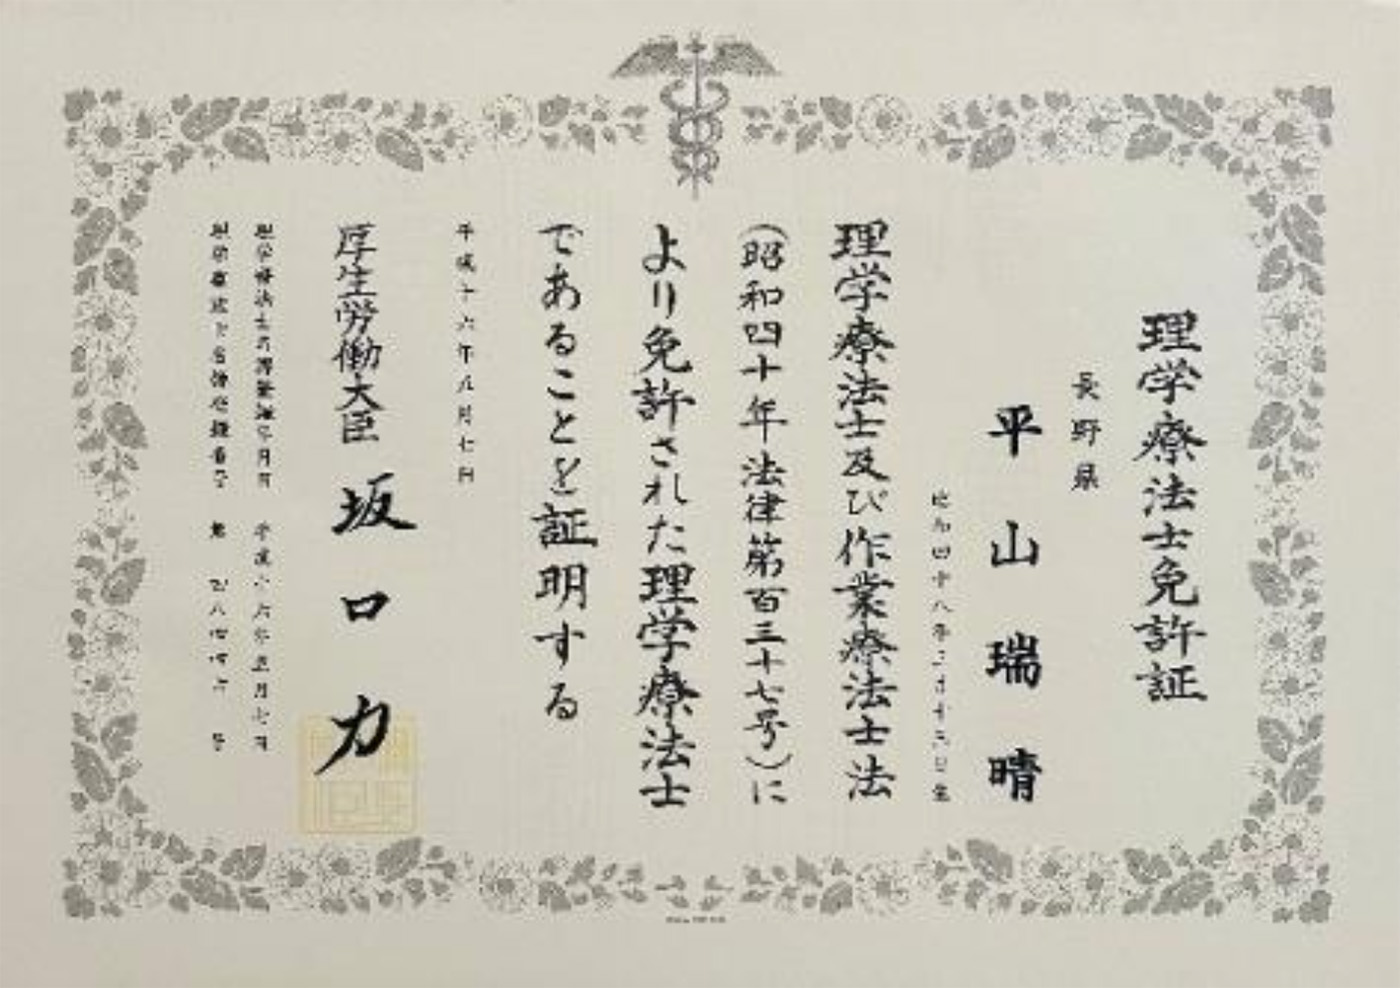 理学療法士免許証
長野県
平山瑞晴
昭和四十八年 十三日生
理学療法士及び作業療法士法
(昭和四十年法律第百三十七号)に
より免許された理学療法士
であることを証明する
平成十六年八月七日
厚生労働大臣 坂口力
理学療法士名簿登録年月日 平成十六年五月七日
理学療法士名簿登録番号 第 号